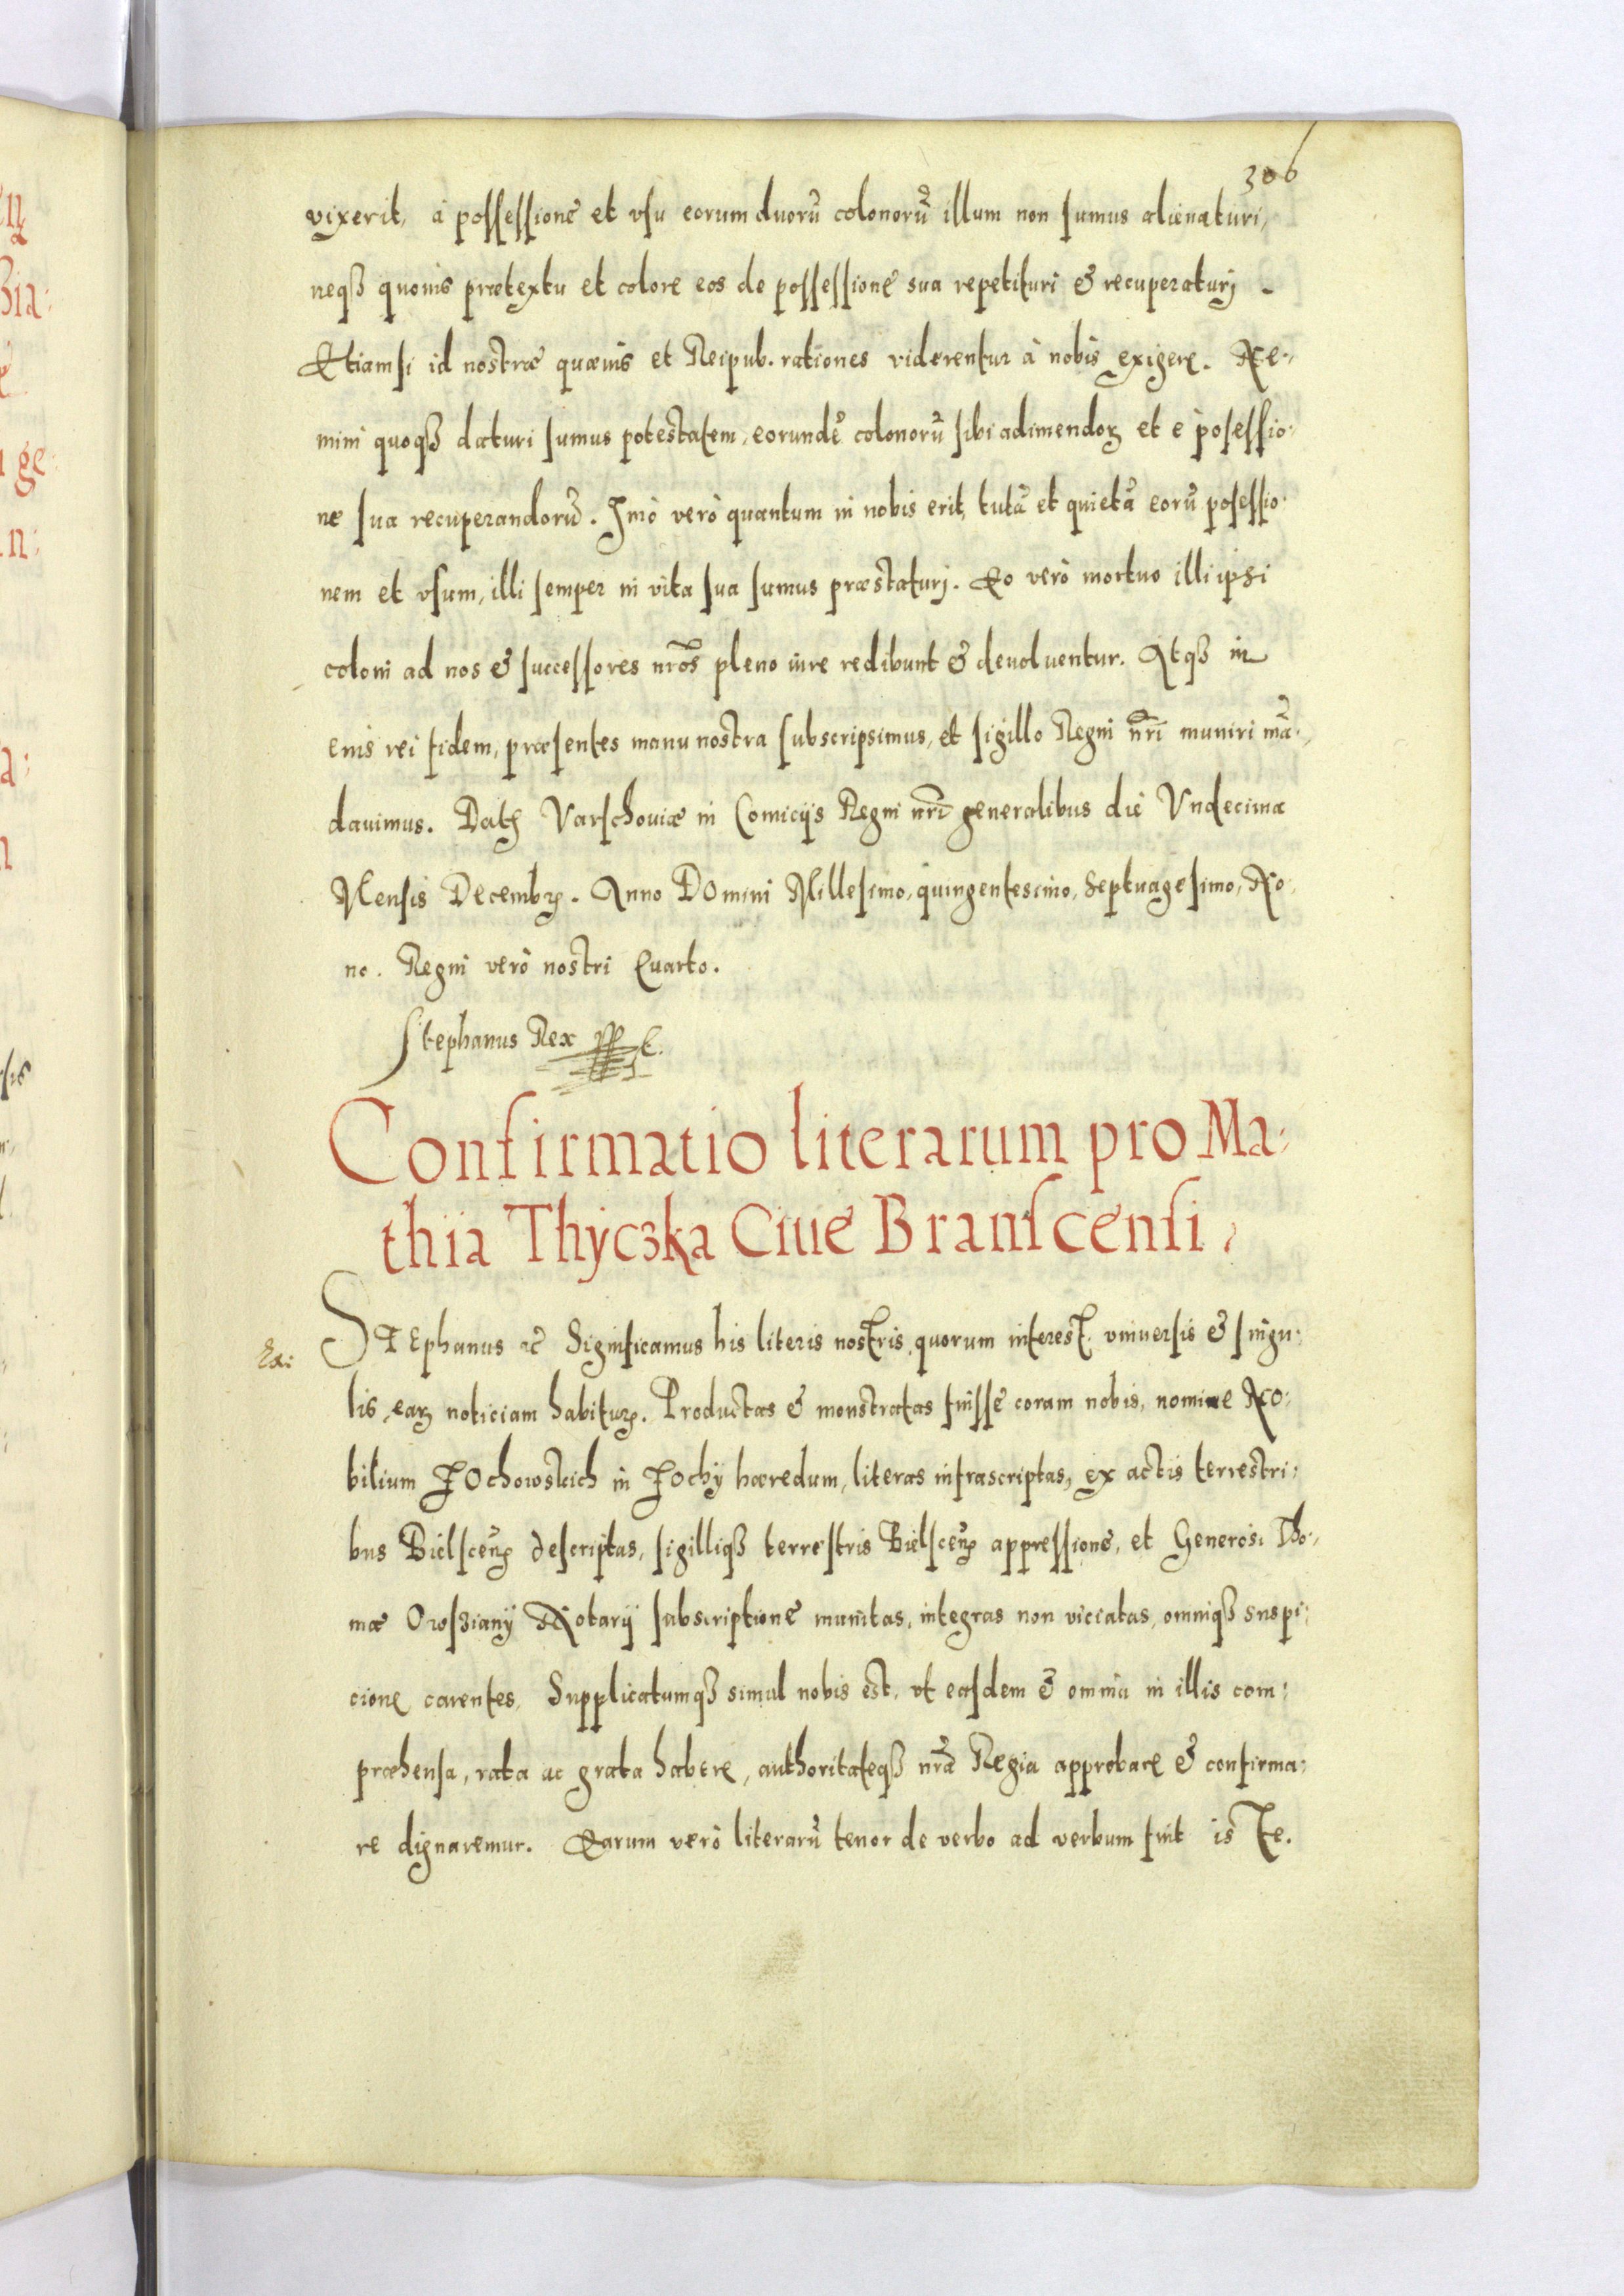 306
vixerit, à possessione et vsu eorum duorũ colonorũ illum non sumus alienaturi,
neqꝫ quouis prætextu et colore eos de possessione sua repetituri & recuperaturj
Etiamsi id nostræ quæuis et Reipub. rationes viderentur à nobis exigere. Ne:
mini quoqꝫ daturi sumus potestatem, eorundẽ colonorũ sibi adimendoꝝ et è posessio:
ne sua recuperandorũ. Imò verò quantum in nobis erit, tutã et quietã eorũ posessio:
nem et vsum, illi semper in vita sua sumus præstaturj. Eo verò mortuo illi ipsi
coloni ad nos & successores nr̃os pleno iure redibunt & deuoluentur. Atqꝫ in
euis rei fidem, præsentes manu nostra subscripsimus, et sigillo Regni nr̃i muniri mã:
dauimus. Datꝭ Varschouiæ in Comicijs Regni nr̃i generalibus die Vndecima
Mensis Decembrꝭ. Anno Domini Millesimo, quingentesimo, Septuagesimo, No:
no. Regni verò nostri Quarto.
Stephanus Rex
Confirmatio literarum pro Ma:
thia Thyczka Ciue Branscensi,
STEphanus &c̃ Significamus his literis nostris, quorum interest vniuersis & singu:
lis, eaꝝ noticiam habiturꝭ. Productas & monstratas fuisse coram nobis, nomine No:
bilium Tochowskich in Tochÿ hæredum, literas infrascriptas, ex actis terrestri:
bus Bielscen̄ꝭ descriptas, sigilliqꝫ terrestris Bielscen̄ꝭ appressione, et Generosi Tho:
mæ Owsziany Notarij subscriptione munitas, integras non viciatas, omniqꝫ suspi:
cione carentes, Supplicatumqꝫ simul nobis est, vt easdem & omnia in illis com:
præhensa, rata ac grata habere, authoritateqꝫ nr̃a Regia approbare & confirma:
re dignaremur. Earum verò literarũ tenor de verbo ad verbum fuit is Te.